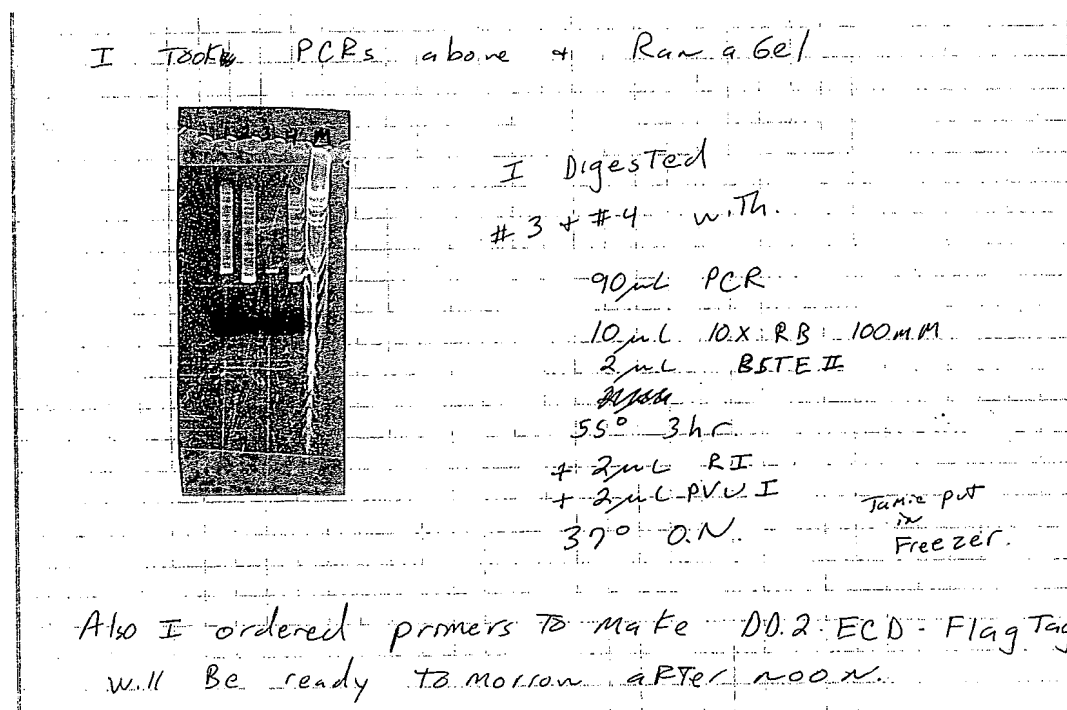 I Took PCRs above + Ran a Gel
1 2 3 4 M
I Digested
#3 + #4 with.
90 µL PCR
10 µL 10X RB 100mM
2 µL BSTE II
55° 3hr.
+ 2 µL RI
+ 2 µL PVU I
37° O.N.
Jamie put
in
Freezer.
Also I ordered primers To Make DD.2 ECD - Flag Tag
will Be ready To Morrow after noon.